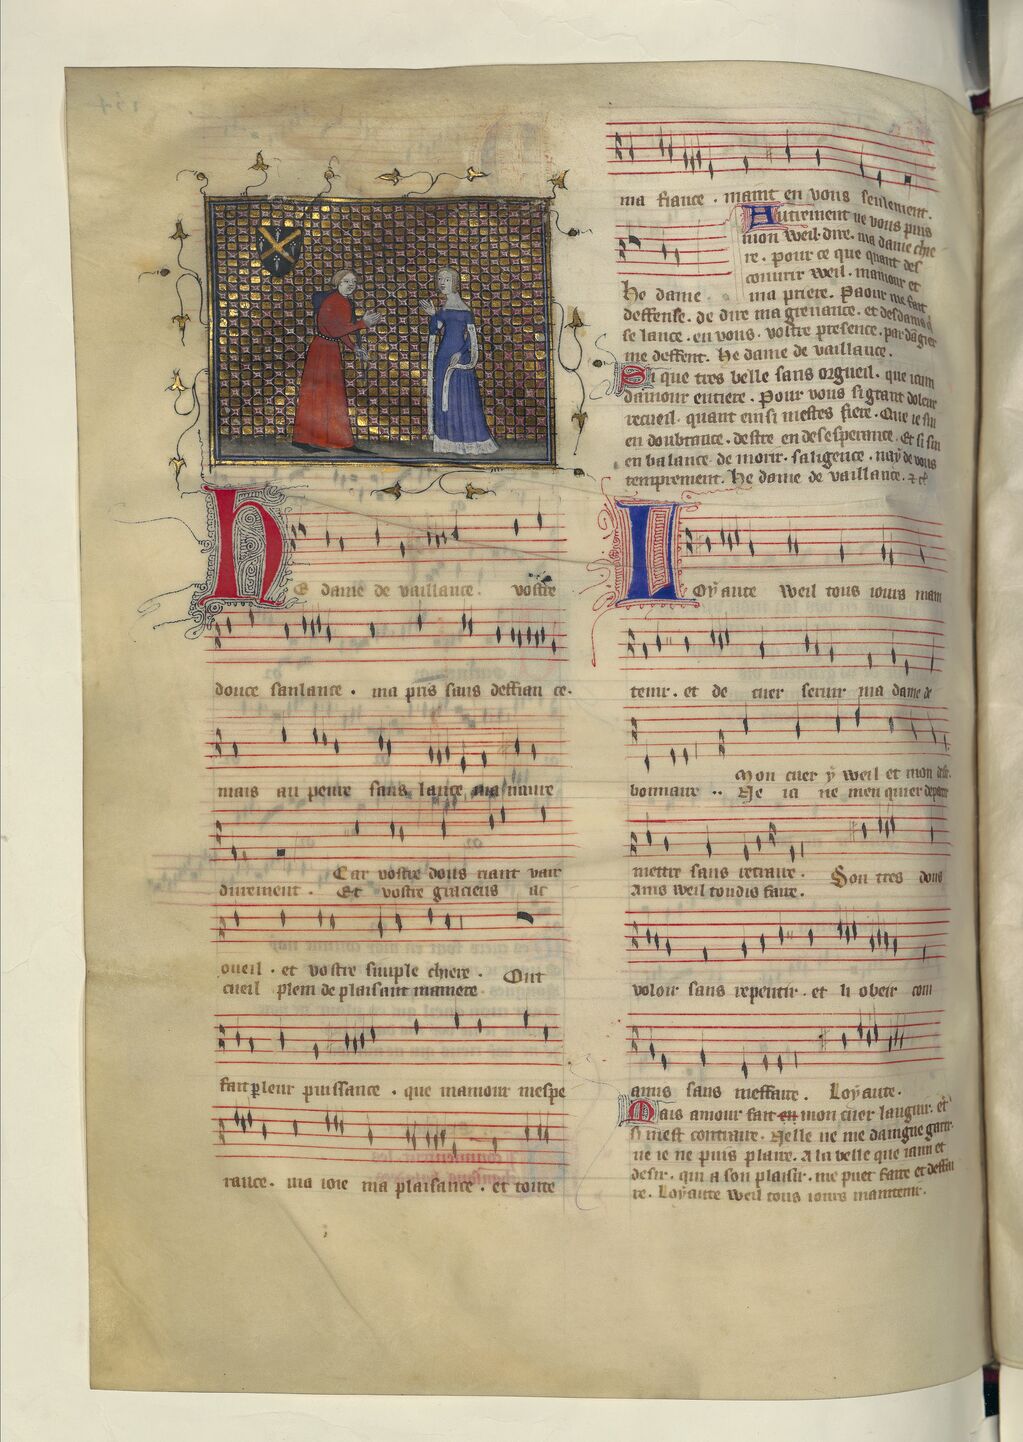 he dame de vaillance. vostre
douce sanlance. ma pris sans deffian ce.
mais au peure sans lance ma naure
Car vostre dous riant vair
durement. Et vostre gracieus ac
oueil. et vostre simple chiere. Ont
cueil plein de plaisant maniere.
fait pleur puissance. que mamour mespe
rance. ma ioie ma plaisance. et toute
ma fiance. maint en vous seulement.
Autrement ne vous puis
mon weil. dire. ma dame chie
re. pour ce que quant des
couurir weil. mamour et
he dame
ma priere. Paour me fait
deffense. de dire ma greuance. et desdains q̃
se lance. en vous. vostre presence. par dāgier
me deffent. he dame de vaillance.
Si que tres belle sans orgueil. que iaim
damour entiere. Pour vous si grant doleur
recueil. quant einsi mestes fiere. Que ie sui
en doubtance. destre en desesperance. Et si sui
en balance de morir. saligence. nay de vous
temprement. he dame de vaillance. &c̃
Loyaute weil tous iours main
tenir. et de cuer seruir ma dame de
Mon cuer y weil et mon desir.
bonnaire. Ne ia ne men quier departir
mettre sans retraire. Son tres dous
Amis weil toudis faire.
voloir sans repentir. et li obeir com
amis sans meffaire. Loyaute.
Mais amour fait en mon cuer languir. et
si mest contraire. Nelle ne me daingne garir.
ne ie ne puis plaire. A la belle que iaim et
desir. qui a son plaisir. me puet faire et deffai
re. Loyaute weil tous iours maintenir.